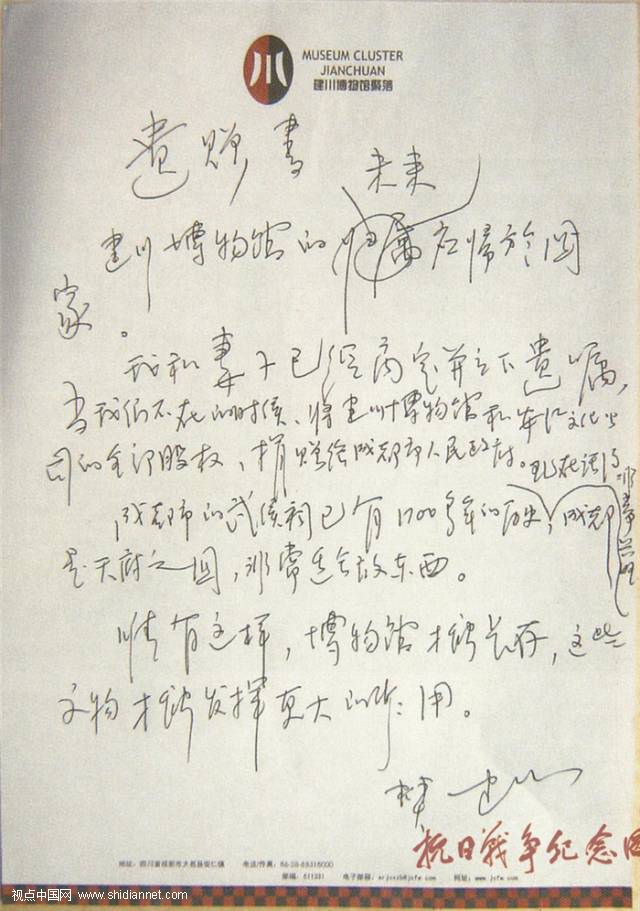 MUSEUM CLUSTER
JIANCHUAN
建川博物馆聚落
遗赠书
未来
建川博物馆的归属应归于国
家。
我和妻子已经商定并立下遗嘱,
当我们不在的时候、将建川博物馆和安仁文化公
司的全部股权,捐赠给成都市人民政府。
现在还保存得非常完整
成都市的武侯祠已有1700多年的历史,成都
是天府之国,非常适合放东西。
惟有这样,博物馆才能长存,这些
文物才能发挥更大的作用。
樊建川
抗日战争纪念
地址:四川省成都市大邑县安仁镇 电话/传真:86-28-88318000
邮编:611331 电子邮箱:
网址:www.jcfw.com
视点中国网 www.shidiannet.com